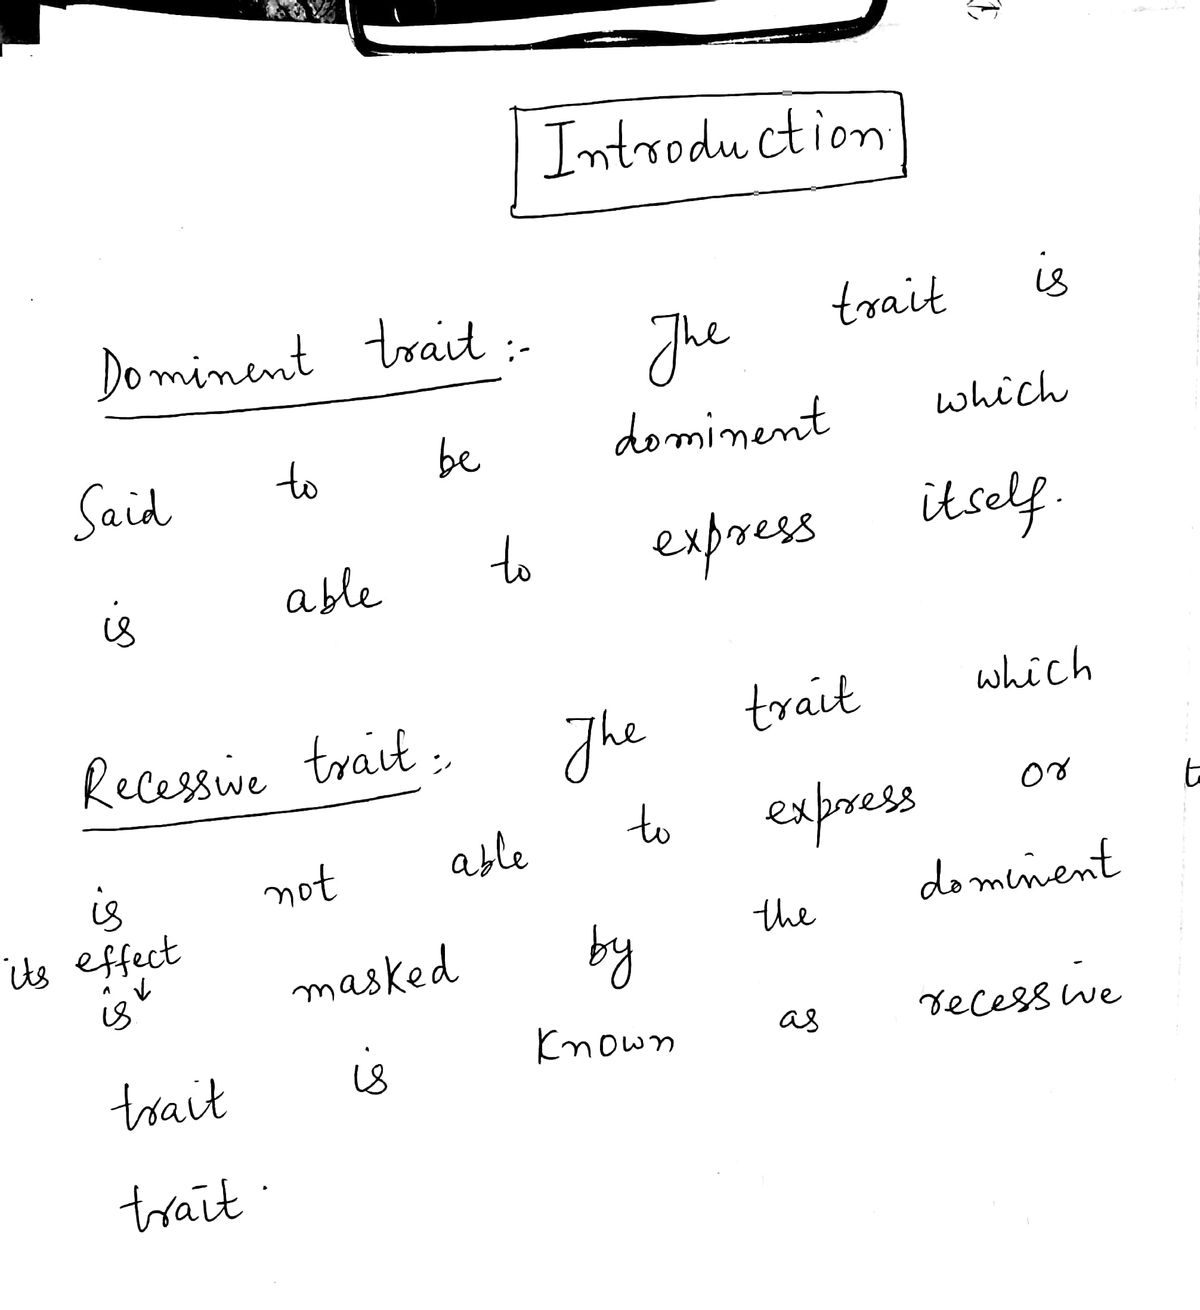 Introduction
Dominent trait :- The trait is
Said to be dominent which
is able to express itself.
Recessive trait :- The trait which
is not able to express or
its effect
is masked by the dominent
trait is Known as recessive
trait.